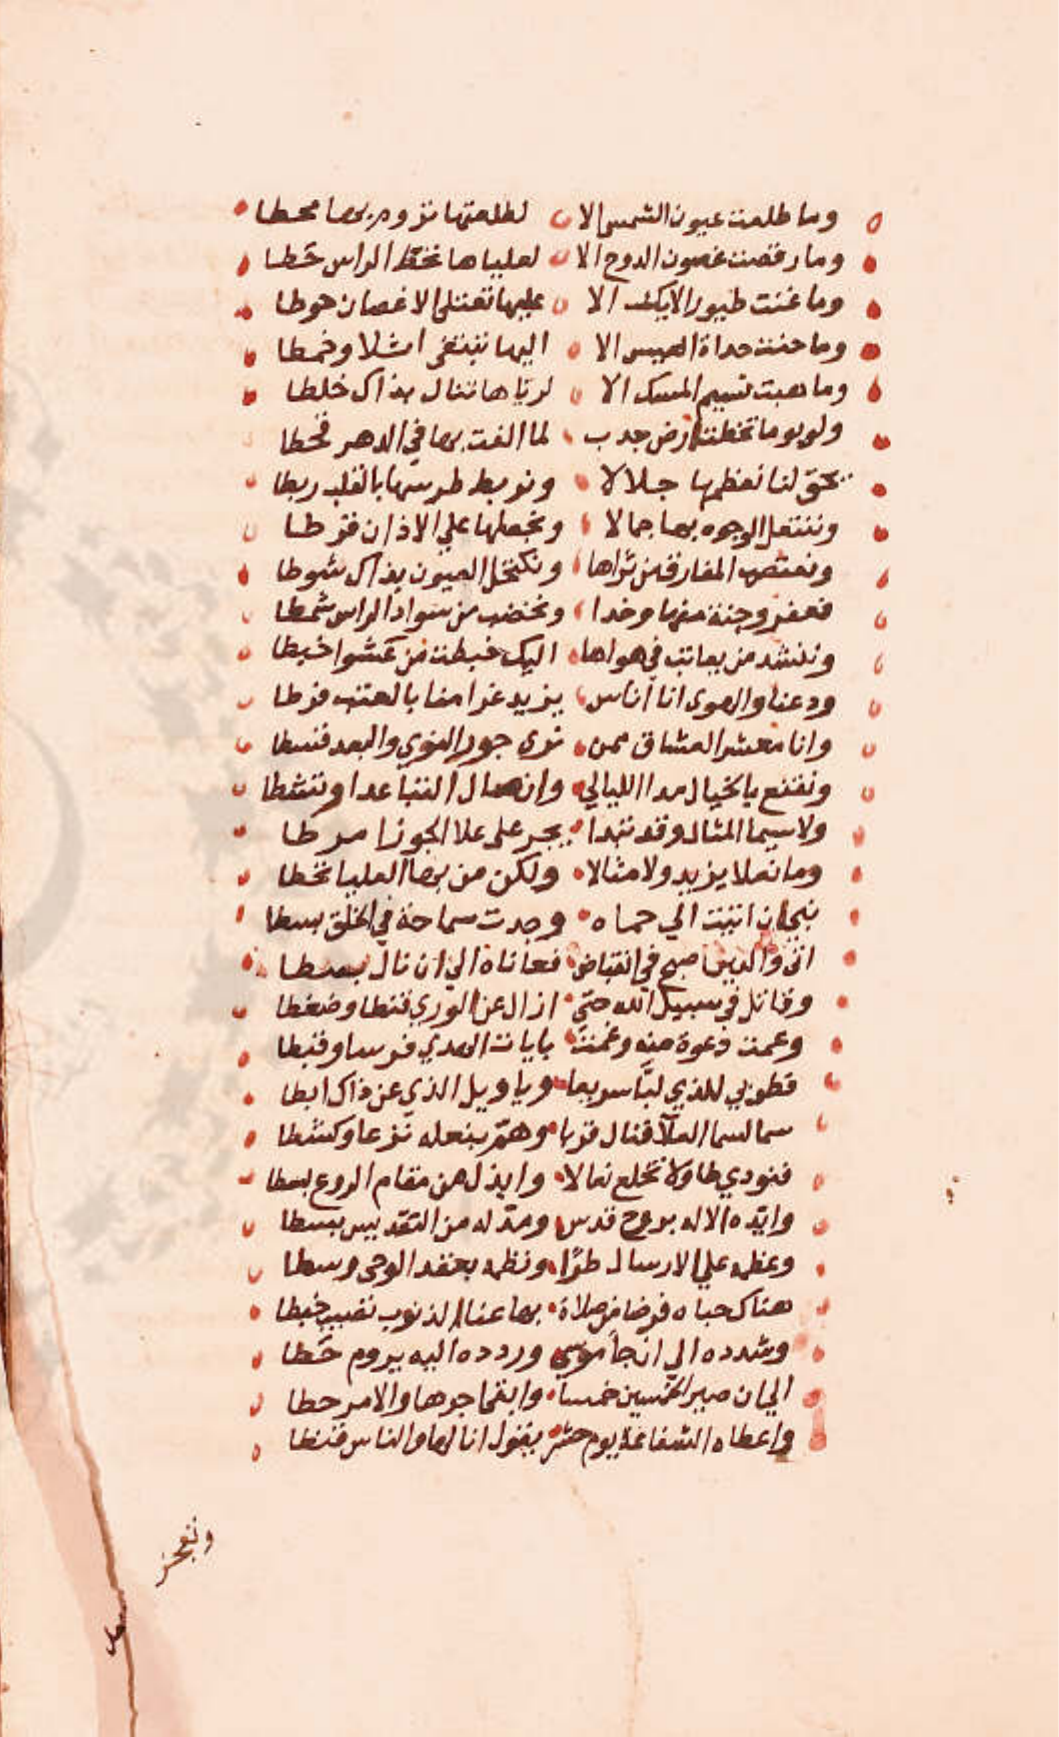 وما طلعت عيون الشمس الا لطلعتها تزور بها محطا
وما رقصت غصون الدوح الا لعلياها تخط الراس خطا
وما غنت طيور الايك الا عليها تعتلي الاغصان حوطا
وما حنت حداة العيس الا اليها تبتغي اثلا وخمطا
وما هبت نسيم المسك الا لرياها تنال بذاك خلطا
ولو يوما تخطت ارض جدب لما الفت بها في الدهر قحطا
يحق لنا نعظمها جلالا ونربط طرسها بالقلب ربطا
وننتعل الوجوه بها جمالا ونجعلها علي الاذان قرطا
ونعتصب المفارق من ثراها ونكتحل العيون بذاك شوطا
فعفر وجنة منها وخدا ونخضب من سواد الراس شمطا
وننشد من يعاتب في هواها اليك خبطت من عشوا خبطا
ودعنا والهوى انا اناس يزيد غرامنا بالعتب فرطا
وانا معشر العشاق ممن نري جور النوي والبعد قسطا
ونقنع بالخيال مدا الليالي وان هال التباعدا وتشطا
ولا سيما المثال وقد تبدا يجر على علا الجوزا مرطا
وما نعلا يزيد ولا مثالا ولكن من بها العليا تخطا
نبي ان اتيت الي حماه وجدت سماحة في الخلق بسطا
اتى والدين اصبح في انقباض فعاناه الي ان نال بسطا
وقاتل في سبيل الله حتي ازال عن الوري قنطا وضغطا
وعمت دعوة منه وغمت بايات الهدي فرسا وقبطا
فطوبي للذي لباس بها ويا ويل الذي عن ذاك ابطا
سما لسما العلا فنال قربا وهم بنعله نزعا وكشطا
فنودي طا ولا تخلع نعالا وابذلهن مقام الروع بسطا
وايده الاله بروح قدس ومد له من التقديس بسطا
وعظمه علي الارسال طرا ونظمه بعقد الوحى وسطا
هناك حباه فرضا من صلاة بها عنا الذنوب تغيب خبطا
وشدده الي انجا موسي وردده اليه يروم حطا
الي ان صير الخمسين خمسا وابقى اجرها والامر حطا
واعطاه الشفاعة يوم حشر يقول انا لها والناس قنطا